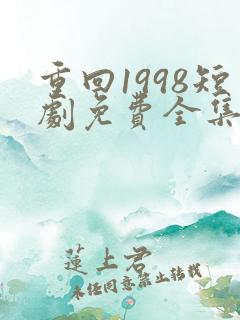 重回1998短
劇免費全集
蓮上君
未经同意禁止转载